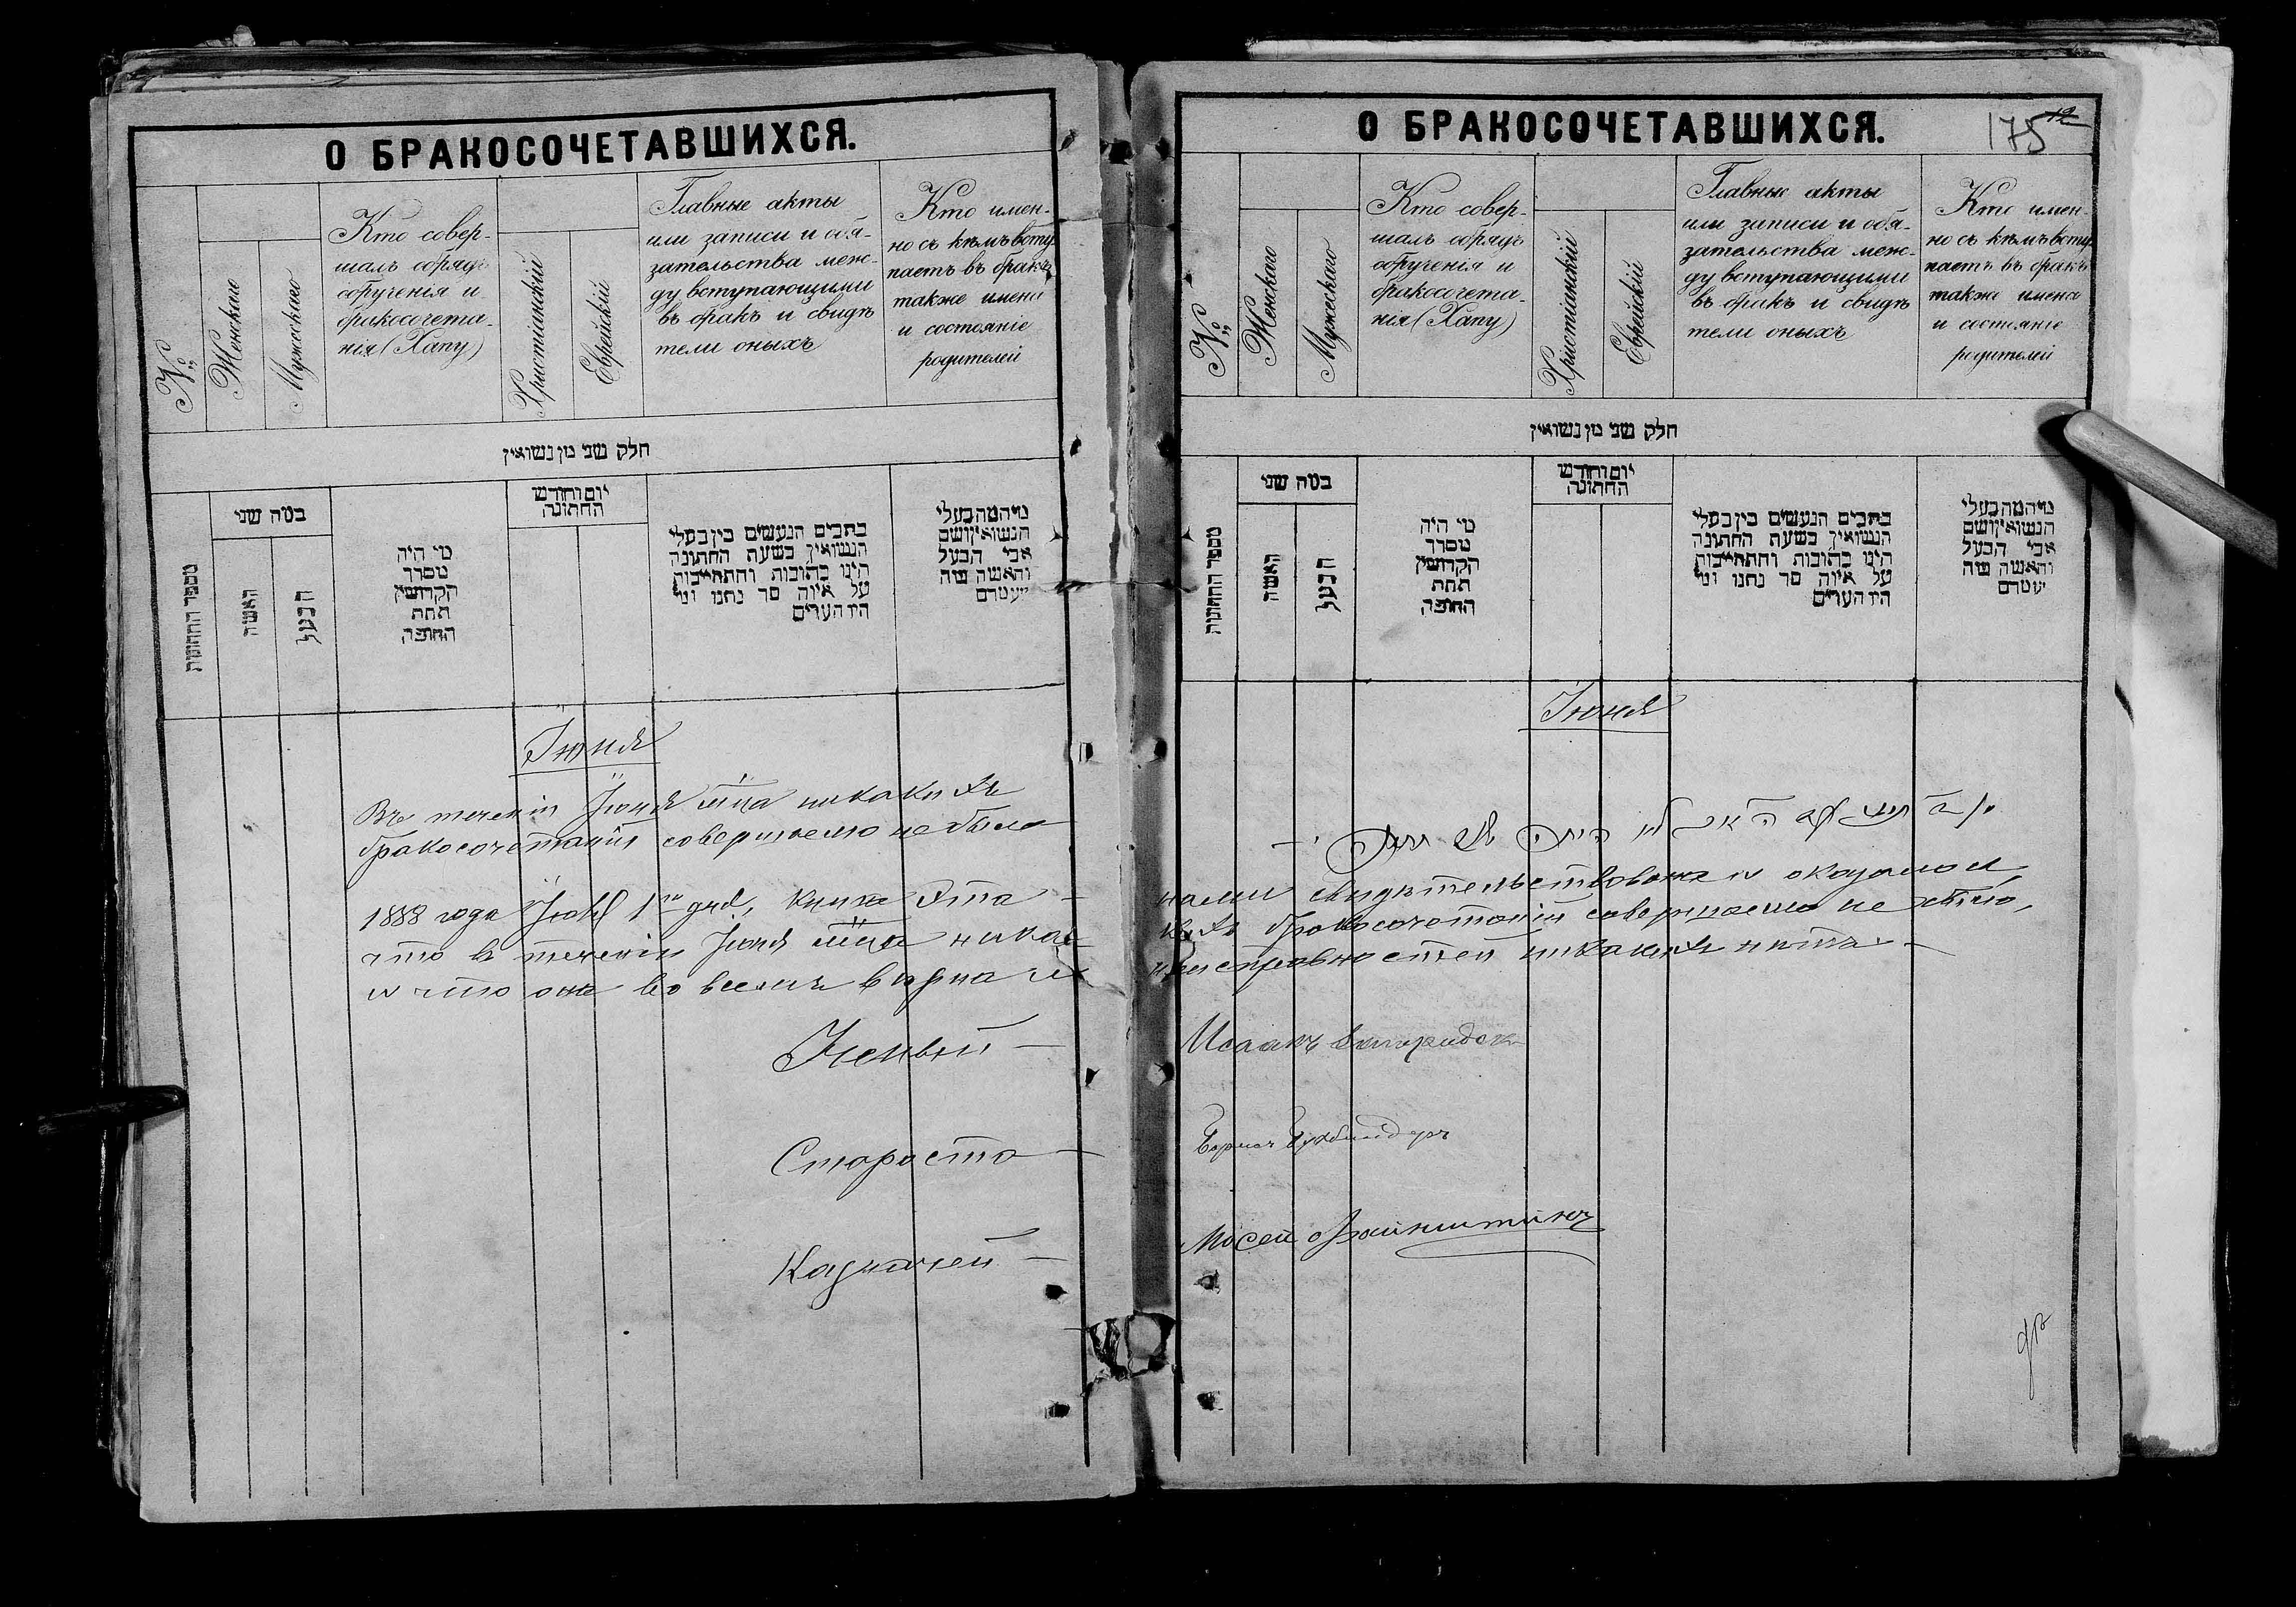 О БРАКОСОЧЕТАВШИХСЯ.
№
Женскаго
Мужескаго
Кто совер-
шалъ обрядъ
обрученія и
бракосочета-
нія (Хапу)
Христіанскій
Еврейскій
Главные акты
или записи и обя-
зательства меж-
ду вступающими
въ бракъ и свидѣ
тели оныхъ
Кто имен-
но съ кѣмъ всту
паетъ въ бракъ
также имена
и состояніе
родителей
חלק שני מן נשואין
מספר החתונות
כמה שני
האשה
הבעל
מי היה
מסדר
הקדושין
תחת
החופה
יום וחודש
החתונה
כתבים הנעשים בין בעלי
הנשואין בשעת החתונה
הינו כתובות והתחייבות
על איזה סך נתנו ומי
היו העדים
מי המה בעלי
הנשואין ושם
אבי הבעל
והאשה ומה
מעמדם
Іюня
Въ теченіи Іюня м-ца никакихъ
бракосочетаній совершаемо не было
1888 года Іюля 1го дня, книга эта
что въ теченіи Іюня м-ца ника-
и что она во всемъ вѣрна и
Ученый —
Староста —
Казначей —
О БРАКОСОЧЕТАВШИХСЯ.
175
12
№
Женскаго
Мужескаго
Кто совер-
шалъ обрядъ
обрученія и
бракосочета-
нія (Хапу)
Христіанскій
Еврейскій
Главные акты
или записи и обя-
зательства меж-
ду вступающими
въ бракъ и свидѣ
тели оныхъ
Кто имен-
но съ кѣмъ всту
паетъ въ бракъ
также имена
и состояніе
родителей
חלק שני מן נשואין
מספר החתונות
כמה שני
האשה
הבעל
מי היה
מסדר
הקדושין
תחת
החופה
יום וחודש
החתונה
כתבים הנעשים בין בעלי
הנשואין בשעת החתונה
הינו כתובות והתחייבות
על איזה סך נתנו ומי
היו העדים
מי המה בעלי
הנשואין ושם
אבי הבעל
והאשה ומה
מעמדם
Іюня
нами свидѣтельствована и оказалось
кихъ бракосочетаній совершаемо не было,
неисправностей никакихъ нѣтъ. —
Исаакъ
Берманъ Бухбиндеръ
Мосей Файнштейнъ